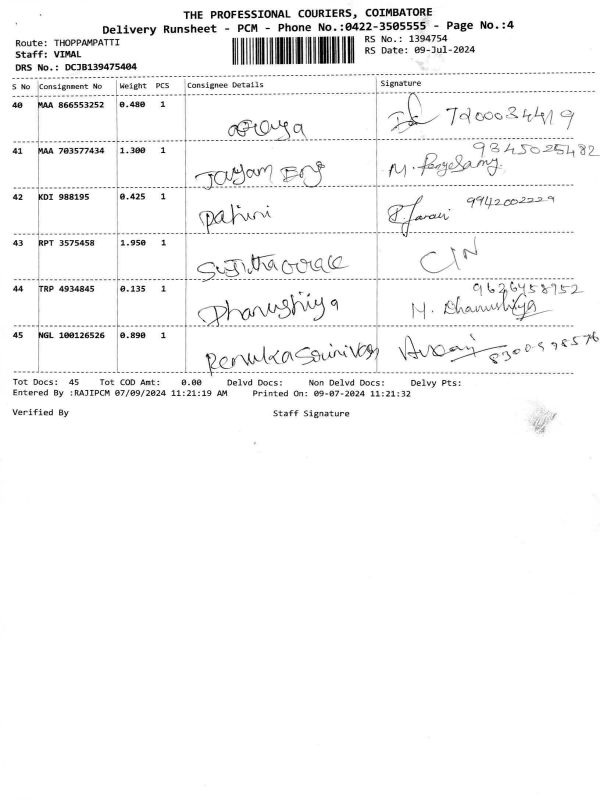 THE PROFESSIONAL COURIERS, COIMBATORE
Delivery Runsheet - PCM - Phone No.:0422-3505555 - Page No.:4
Route: THOPPAMPATTI RS No.: 1394754
Staff: VIMAL RS Date: 09-Jul-2024
DRS No.: DCJB139475404
S No Consignment No Weight PCS Consignee Details Signature
40 MAA 866553252 0.480 1 7200034419
41 MAA 703577434 1.300 1 Jayam Eng 9345025482
42 KDI 988195 0.425 1 9942002229
43 RPT 3575458 1.950 1
44 TRP 4934845 0.135 1 Dhanushiya M. Dhanushiya 9626458952
45 NGL 100126526 0.890 1 Renuka Srinivas 8300598576
Tot Docs: 45 Tot COD Amt: 0.00 Delvd Docs: Non Delvd Docs: Delvy Pts:
Entered By :RAJIPCM 07/09/2024 11:21:19 AM Printed On: 09-07-2024 11:21:32
Verified By Staff Signature